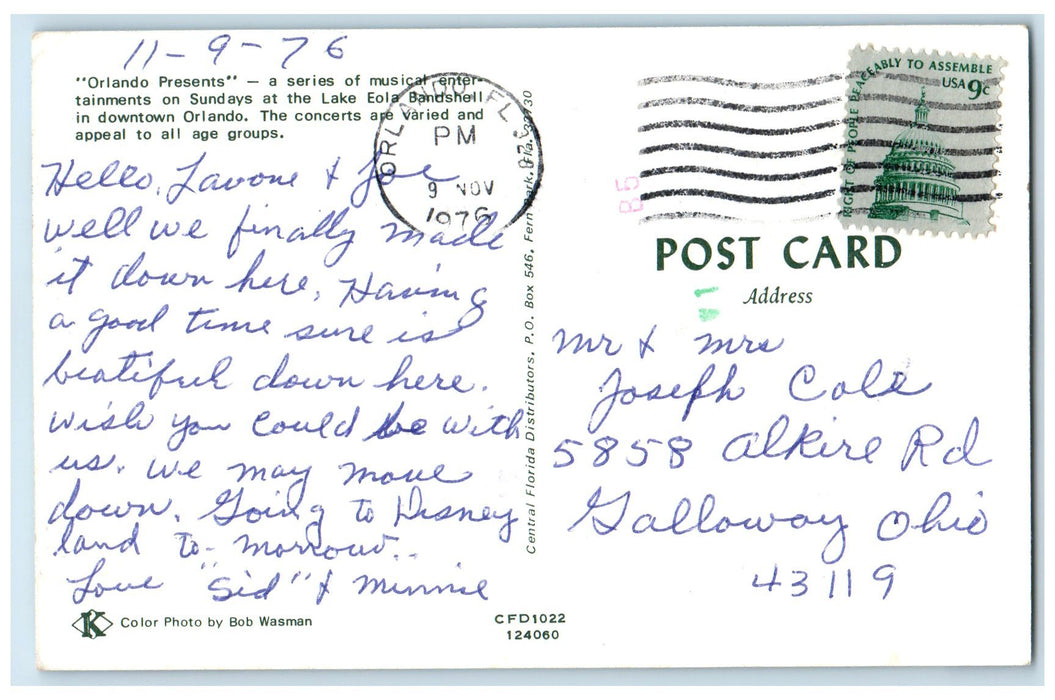 11-9-76
"Orlando Presents" — a series of musical enter-
tainments on Sundays at the Lake Eola Bandshell
in downtown Orlando. The concerts are varied and
appeal to all age groups.
Hello, Lavone & Joe
well we finally made
it down here, Having
a good time sure is
beatiful down here.
wish you could be with
us. we may move
down. Going to Disney
land to-morrow..
Love "Sid" & Minnie
K
Color Photo by Bob Wasman
CFD1022
124060
Central Florida Distributors, P.O. Box 546, Fern Park, Fla. 32730
ORLANDO, FL 328
PM
9 NOV
1976
B5
RIGHT OF PEOPLE PEACEABLY TO ASSEMBLE
USA 9c
POST CARD
Address
Mr & Mrs
Joseph Cole
5858 Alkire Rd
Galloway Ohio
43119